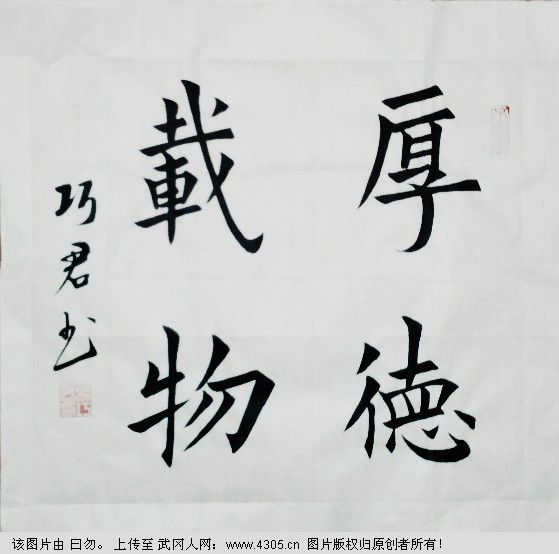 厚德
載物
巧君书
该图片由 曰勿。 上传至 武冈人网：www.4305.cn 图片版权归原创者所有！